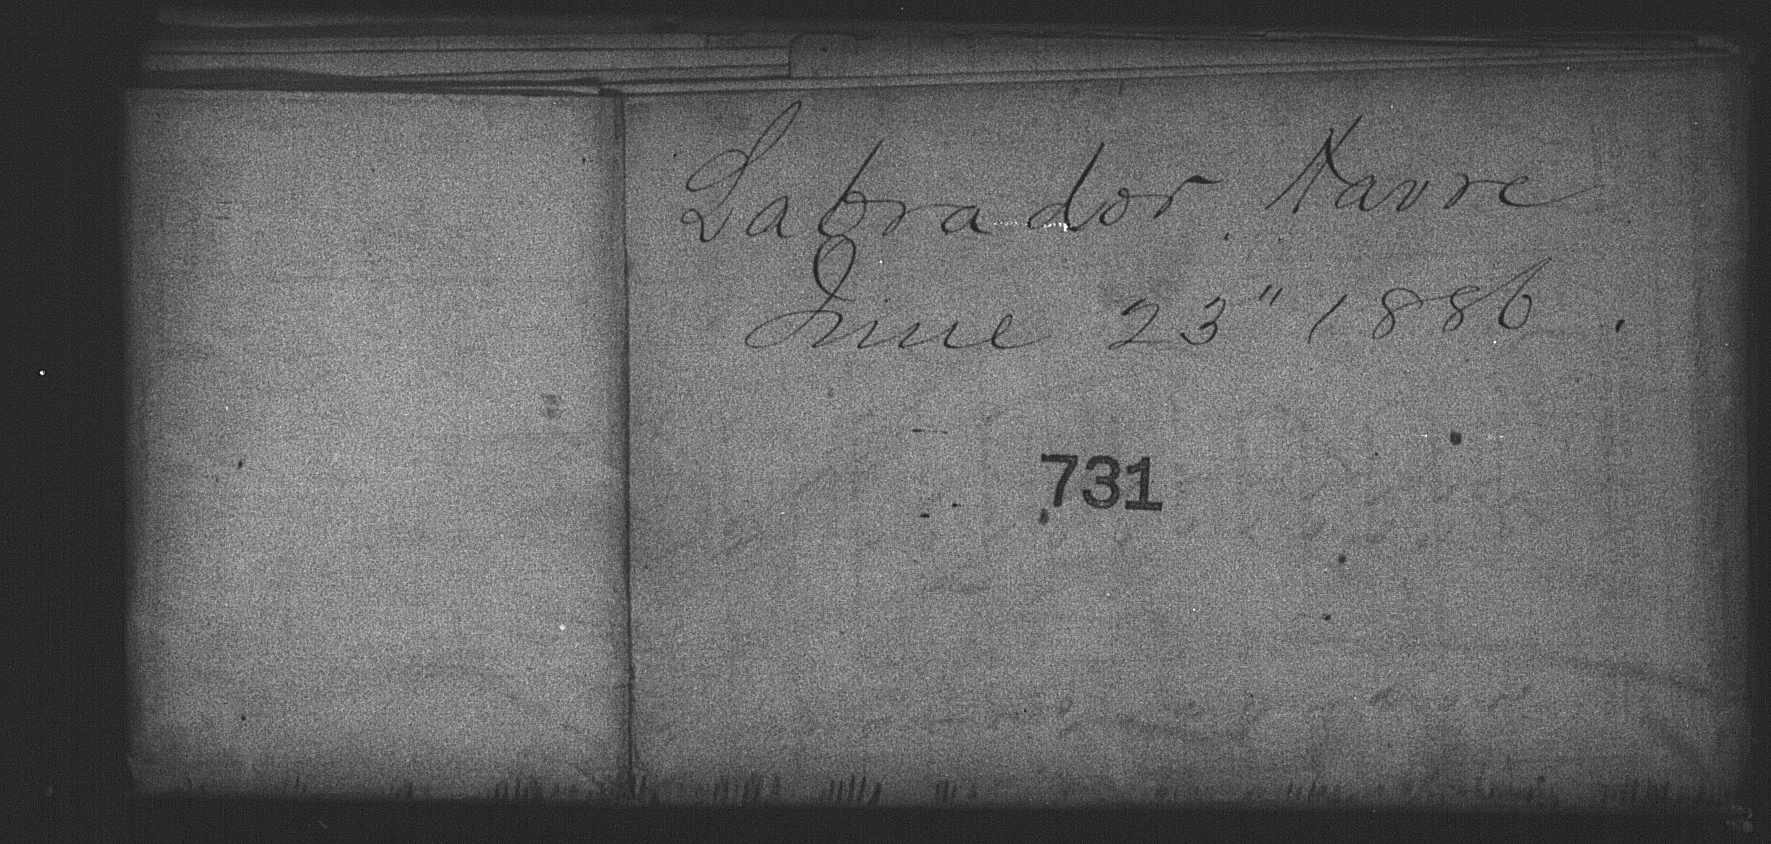 Labrador Havre
June 23" 1886.
731